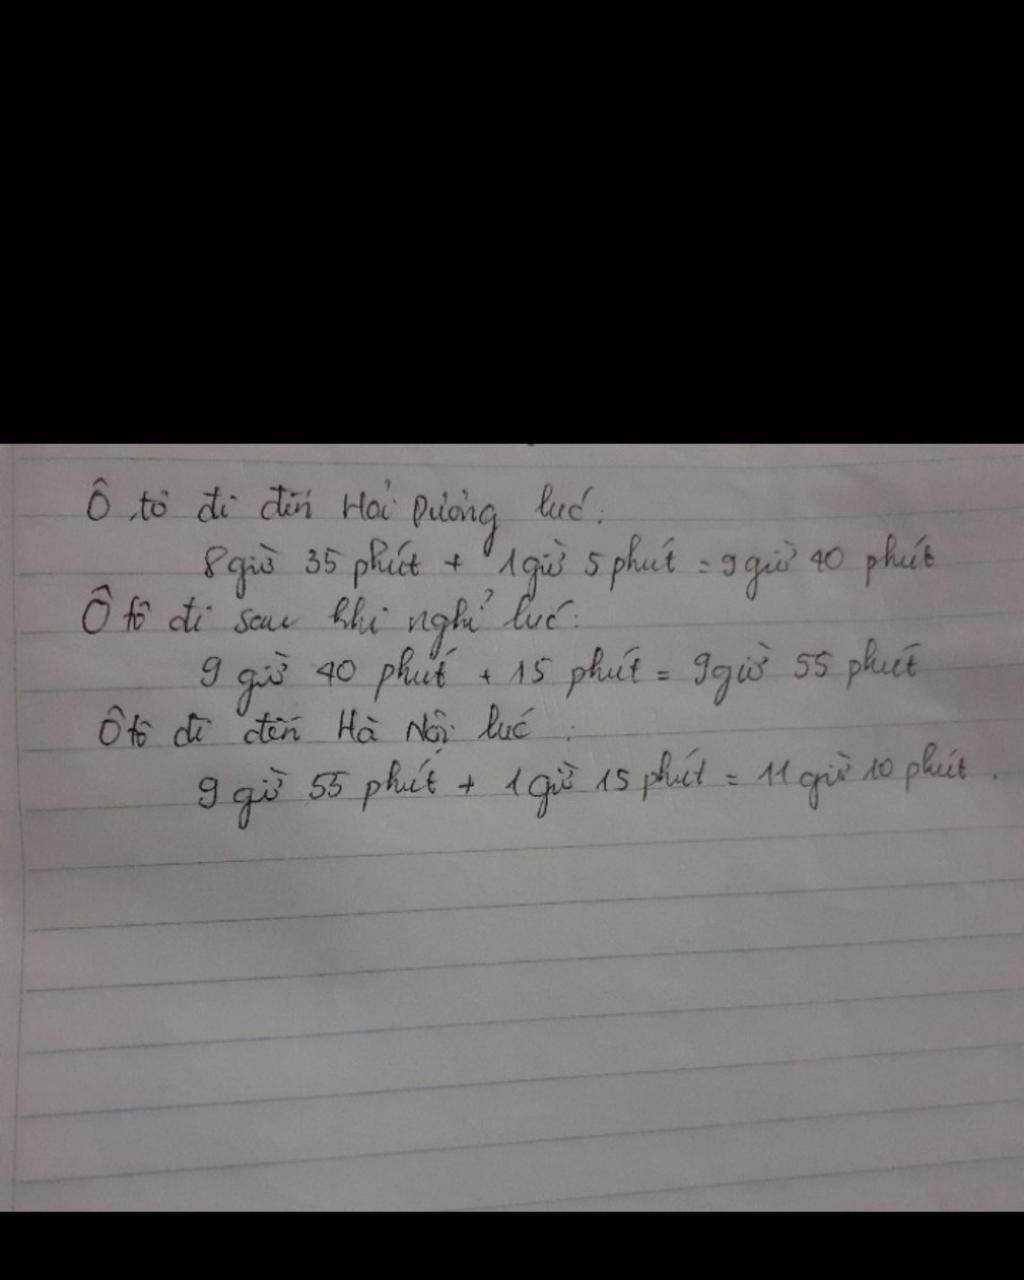 Ô tô đi đến Hải Dương lúc:
8 giờ 35 phút + 1 giờ 5 phút = 9 giờ 40 phút
Ô tô đi sau khi nghỉ lúc:
9 giờ 40 phút + 15 phút = 9 giờ 55 phút
Ô tô đi đến Hà Nội lúc:
9 giờ 55 phút + 1 giờ 15 phút = 11 giờ 10 phút.